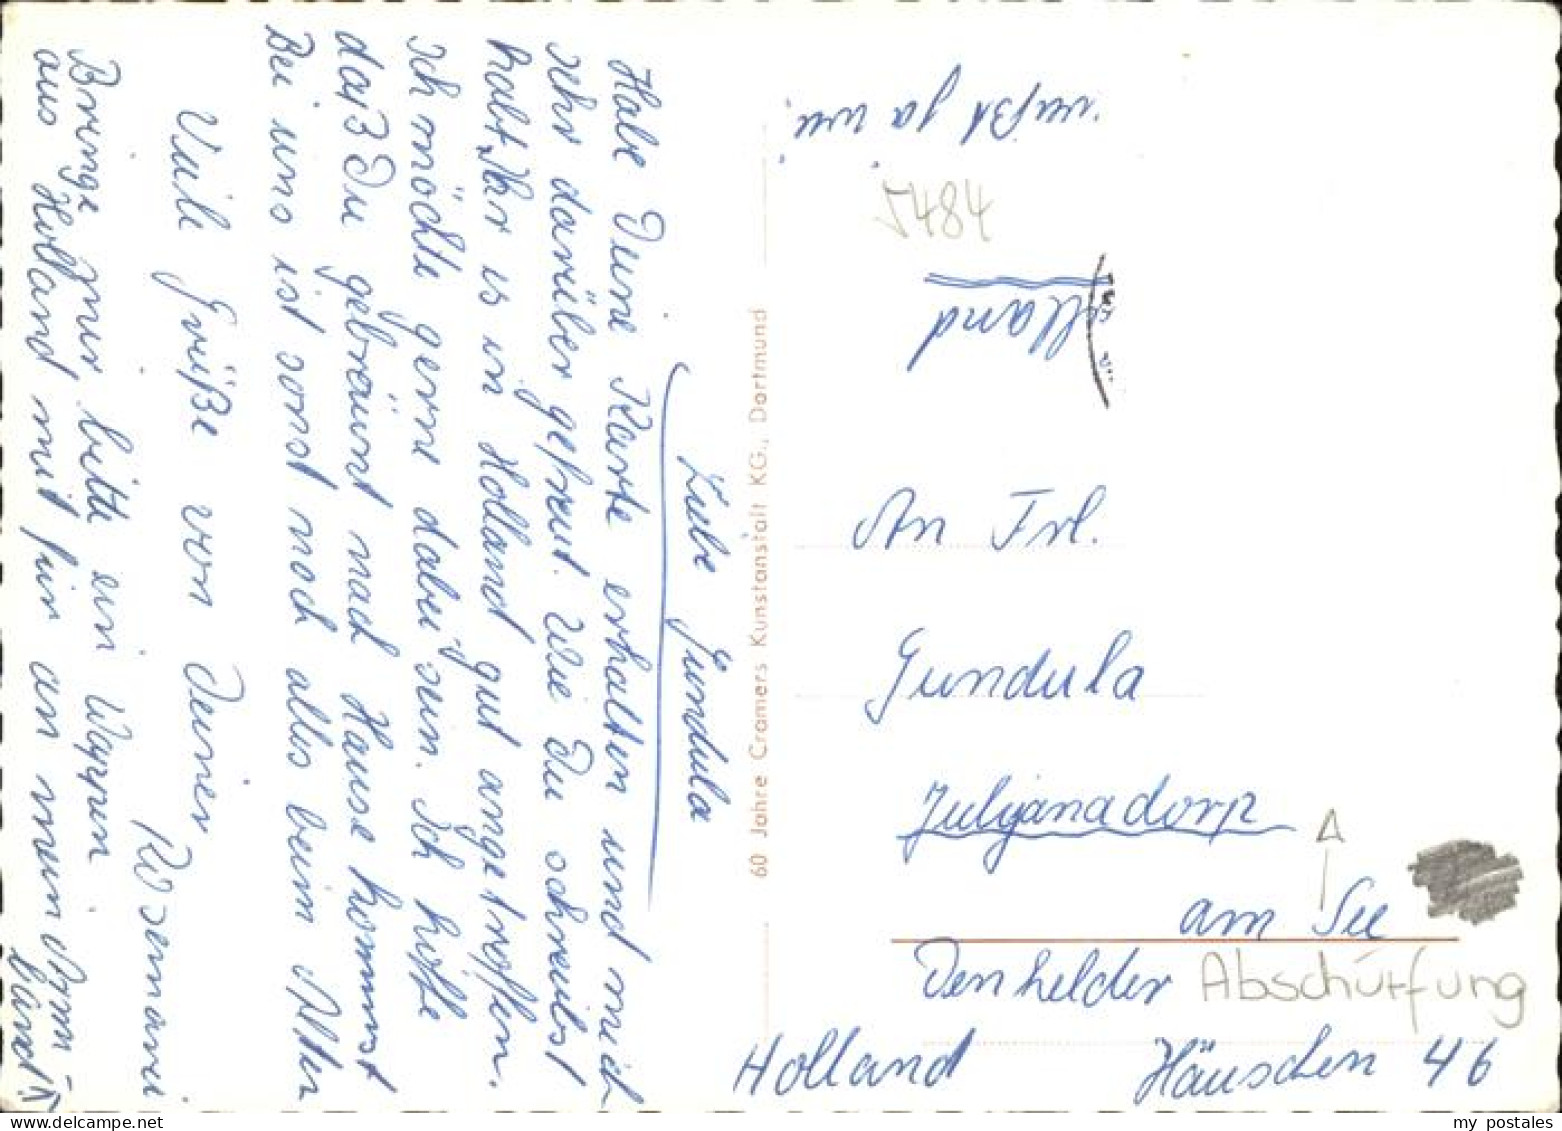 Liebe Gundula
Habe Deine Karte erhalten und mich
sehr darüber gefreut. Wie Du schreibst
habt, Ihr es in Holland gut angetroffen.
Ich möchte gerne dabei sein. Ich hoffe
daß Du gebräunt nach Hause kommst
Bei uns ist sonst noch alles beim Alten
Viele Grüße von Deiner
Rosemarie
Bringe mir bitte ein Wappen
aus Holland mit für an mein Arm-
band
weißt ja wie.
60 Jahre Cramers Kunstanstalt KG., Dortmund
5484
An Frl.
Gundula
Julijanadorp
am See
Den helder
Abschürfung
Holland
Häuschen 46
my postales